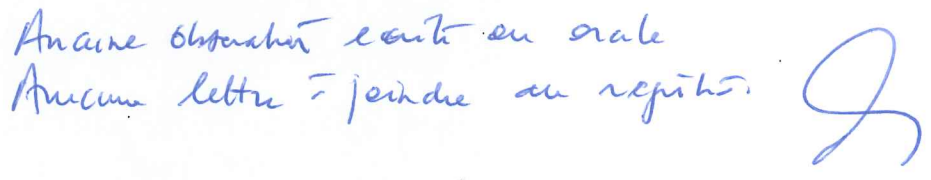 Aucune observation écrite ou orale
Aucune lettre à joindre au registre.